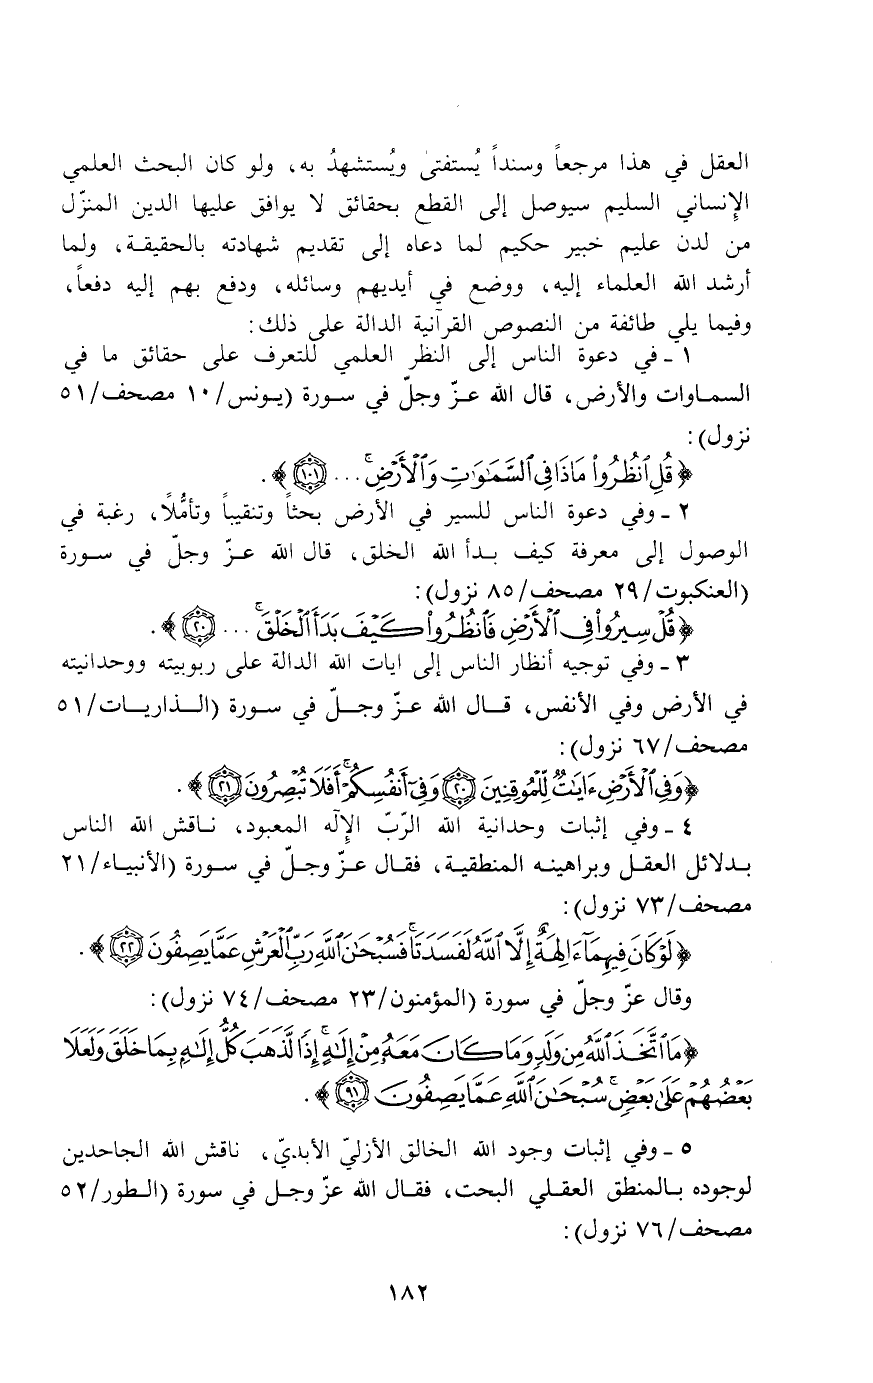 العقل في هذا مرجعاً وسنداً يُستفتىٰ ويُستشهدُ به، ولو كان البحث العلمي
الإنساني السليم سيوصل إلى القطع بحقائق لا يوافق عليها الدين المنزّل
من لدن عليم خبير حكيم لما دعاه إلى تقديم شهادته بالحقيقة، ولما
أرشد الله العلماء إليه، ووضع في أيديهم وسائله، ودفع بهم إليه دفعاً،
وفيما يلي طائفة من النصوص القرآنية الدالة على ذلك:
١ ـ في دعوة الناس إلى النظر العلمي للتعرف على حقائق ما في
السماوات والأرض، قال الله عزّ وجلّ في سورة (يونس/١٠ مصحف/٥١
نزول):
﴿قُلِ ٱنظُرُوا۟ مَاذَا فِى ٱلسَّمَٰوَٰتِ وَٱلْأَرْضِ ۚ ... ١٠١﴾.
٢ ـ وفي دعوة الناس للسير في الأرض بحثاً وتنقيباً وتأمُّلاً، رغبة في
الوصول إلى معرفة كيف بدأ الله الخلق، قال الله عزّ وجلّ في سورة
(العنكبوت/٢٩ مصحف/٨٥ نزول):
﴿قُلْ سِيرُوا۟ فِى ٱلْأَرْضِ فَٱنظُرُوا۟ كَيْفَ بَدَأَ ٱلْخَلْقَ ۚ ... ٢٠﴾.
٣ ـ وفي توجيه أنظار الناس إلى ايات الله الدالة على ربوبيته ووحدانيته
في الأرض وفي الأنفس، قال الله عزّ وجلّ في سورة (الذاريات/٥١
مصحف/٦٧ نزول):
﴿وَفِى ٱلْأَرْضِ ءَايَٰتٌ لِّلْمُوقِنِينَ ٢٠ وَفِىٓ أَنفُسِكُمْ ۚ أَفَلَا تُبْصِرُونَ ٢١﴾.
٤ ـ وفي إثبات وحدانية الله الرّبّ الإله المعبود، ناقش الله الناس
بدلائل العقل وبراهينه المنطقية، فقال عزّ وجلّ في سورة (الأنبياء/٢١
مصحف/٧٣ نزول):
﴿لَوْ كَانَ فِيهِمَآ ءَالِهَةٌ إِلَّا ٱللَّهُ لَفَسَدَتَا ۚ فَسُبْحَٰنَ ٱللَّهِ رَبِّ ٱلْعَرْشِ عَمَّا يَصِفُونَ ٢٢﴾.
وقال عزّ وجلّ في سورة (المؤمنون/٢٣ مصحف/٧٤ نزول):
﴿مَا ٱتَّخَذَ ٱللَّهُ مِن وَلَدٍ وَمَا كَانَ مَعَهُۥ مِنْ إِلَٰهٍ ۚ إِذًا لَّذَهَبَ كُلُّ إِلَٰهٍۭ بِمَا خَلَقَ وَلَعَلَا
بَعْضُهُمْ عَلَىٰ بَعْضٍ ۚ سُبْحَٰنَ ٱللَّهِ عَمَّا يَصِفُونَ ٩١﴾.
٥ ـ وفي إثبات وجود الله الخالق الأزليّ الأبديّ، ناقش الله الجاحدين
لوجوده بالمنطق العقلي البحت، فقال الله عزّ وجل في سورة (الطور/٥٢
مصحف/٧٦ نزول):
١٨٢